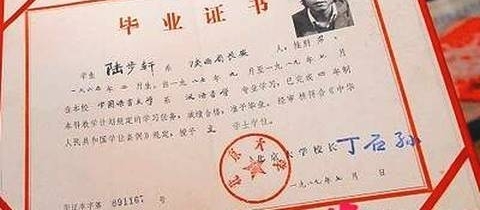 毕业证书
学生 陆步轩 系 陕西省长安 人，性别 男，
一九六五年 二 月生，自一九八五年 九 月至一九八九年 七 月
在本校 中国语言文学 系 汉语言学 专业学习，已完成 四 年制
本科教学计划规定的学习任务，成绩合格，准予毕业。经审核符合《中华
人民共和国学位条例》规定，授予 文 学士学位。
北京大学校长 丁石孙
一九八九年七月 日
证书本字第 891167 号
北京大学